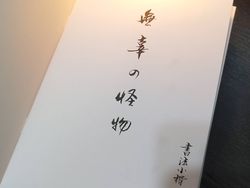 無辜の怪物
書法小